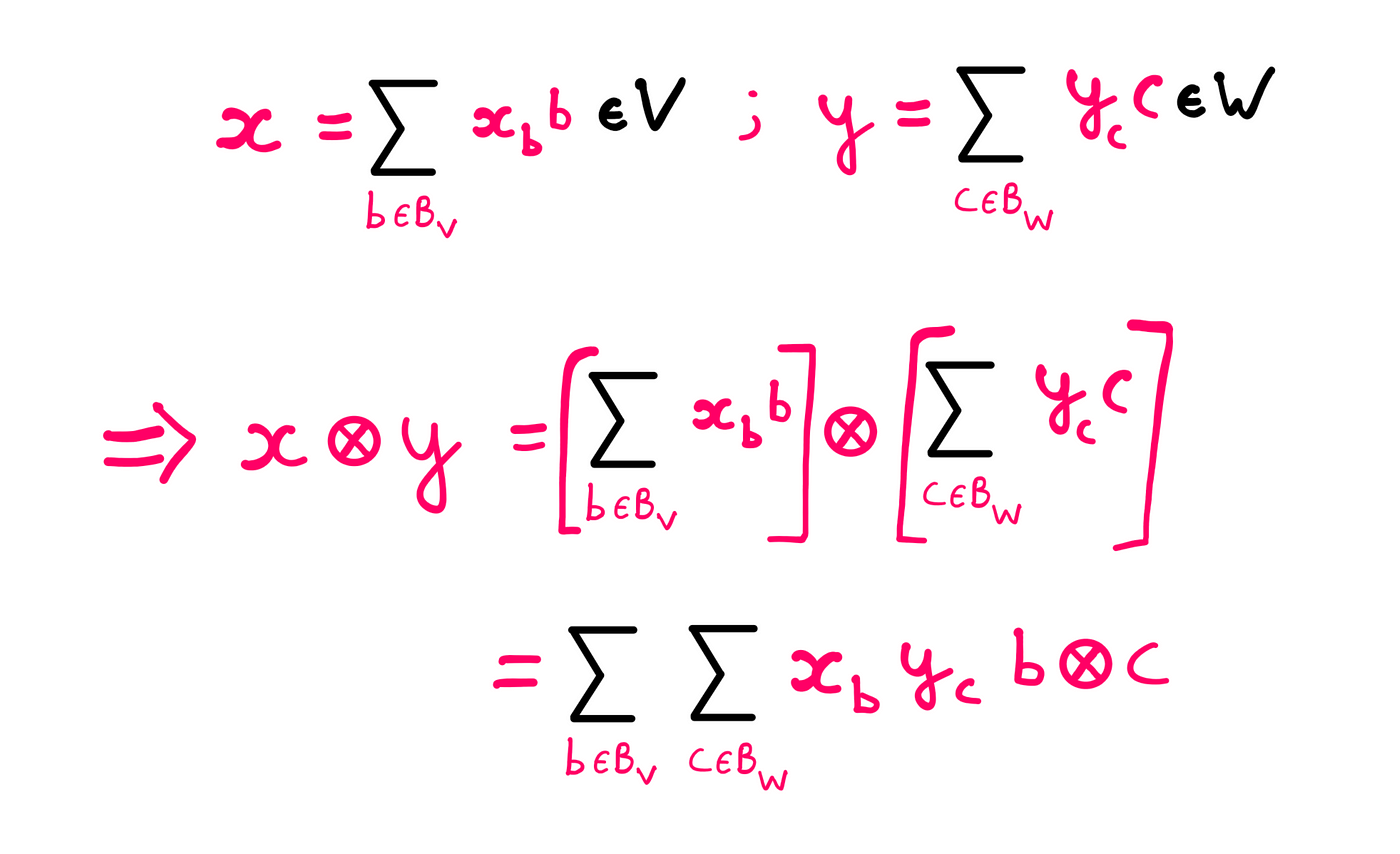 x = ∑_{b∈B_V} x_b b ∈ V ; y = ∑_{c∈B_W} y_c c ∈ W
⇒ x ⊗ y = [∑_{b∈B_V} x_b b] ⊗ [∑_{c∈B_W} y_c c]
= ∑_{b∈B_V} ∑_{c∈B_W} x_b y_c b ⊗ c